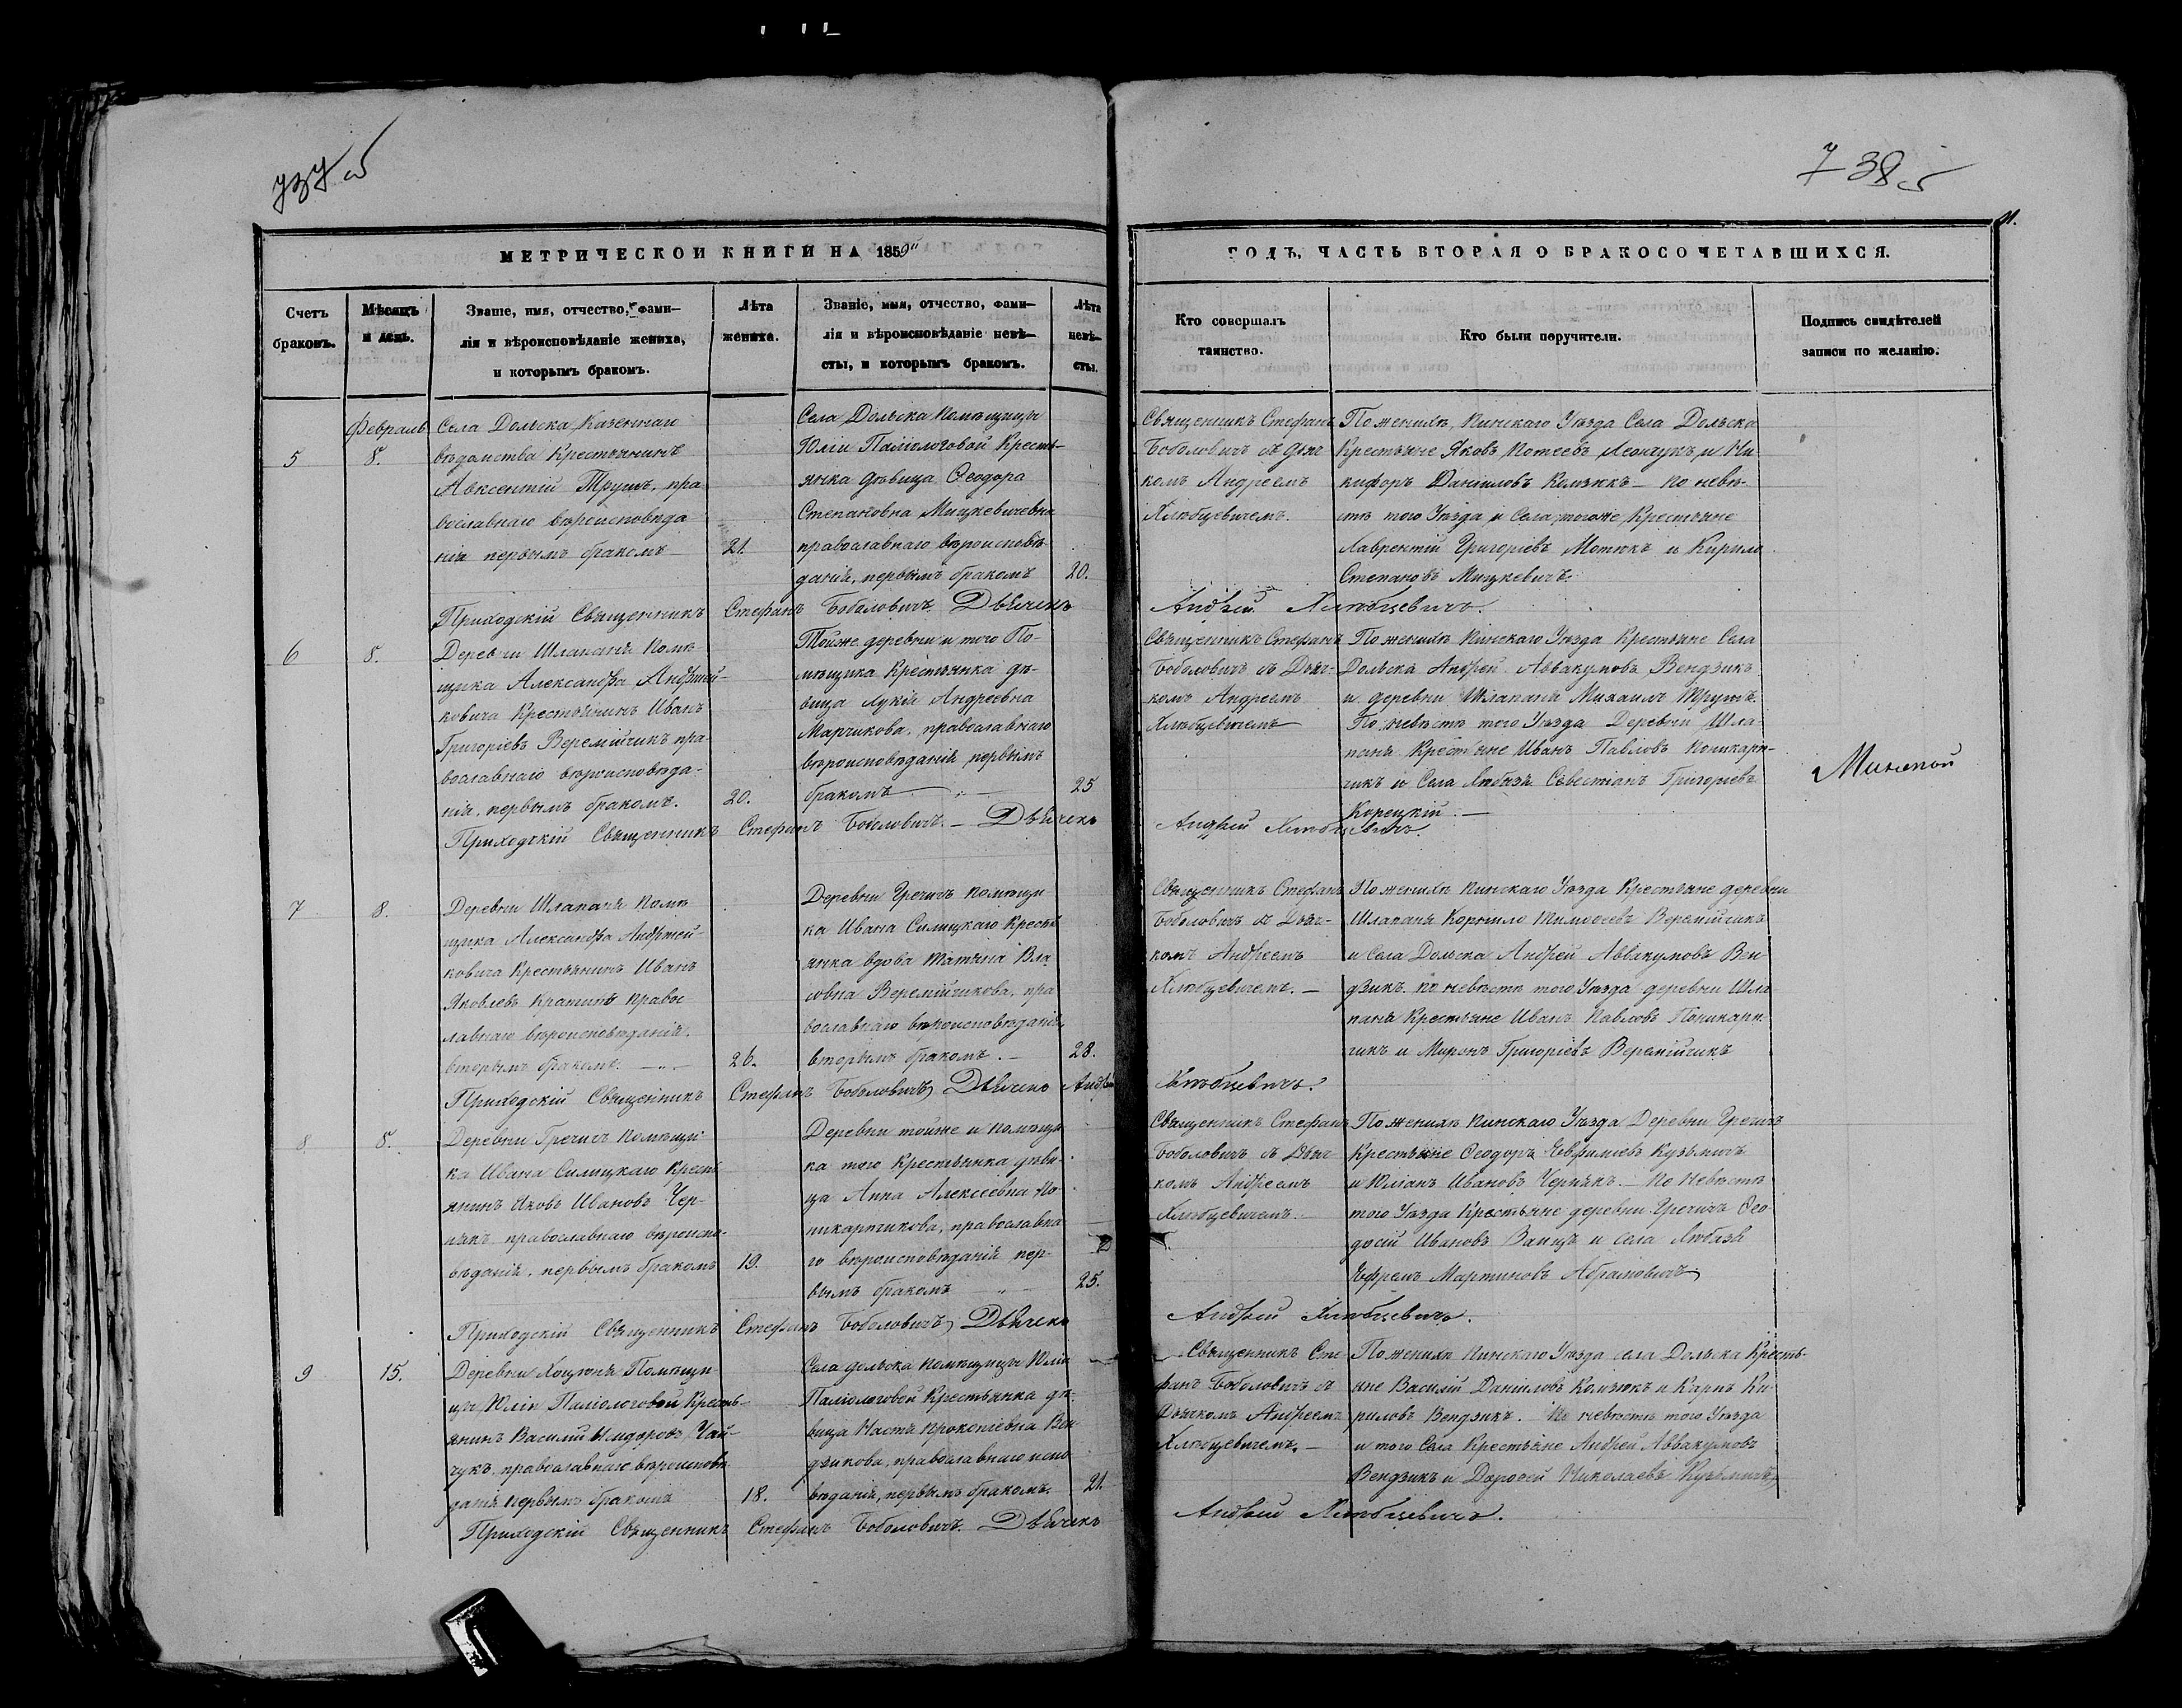 737 об
738 об
МЕТРИЧЕСКОЙ КНИГИ НА 1859
ГОДЪ, ЧАСТЬ ВТОРАЯ О БРАКОСОЧЕТАВШИХСЯ.
Счетъ браковъ.
Мѣсяцъ и день.
Званіе, имя, отчество, фами-
лія и вѣроисповѣданіе жениха,
и которымъ бракомъ.
Лѣта жениха.
Званіе, имя, отчество, фами-
лія и вѣроисповѣданіе невѣ-
сты, и которымъ бракомъ.
Лѣта невѣ-
сты.
Кто совершалъ
таинство.
Кто были поручители.
Подпись свидѣтелей
записи по желанію.
5
Февраль
8.
Села Дольска Казеннаго
вѣдомства Крестьянинъ
Авксентій Трушъ, пра
вославнаго вѣроисповѣда
нія первымъ бракомъ
21.
Села Дольска Помѣщицы
Юліи Паліологовой Кресть-
янка дѣвица Ѳеодора
Степановна Мицкевичевна
православнаго вѣроисповѣ-
данія, первымъ бракомъ
20.
Священникъ Стефанъ
Боболовичъ съ Дьяч
комъ Андреемъ
Хлѣбцевичемъ.
По женихѣ, Пинскаго Уѣзда Села Дольска
Крестьяне Яковъ Потеевъ Леончукъ и Ни
кифоръ Даніиловъ Комзюкъ - по невѣ-
стѣ того Уѣзда и Села тогоже, Крестьяне
Лаврентій Григоріевъ Мотюкъ и Кирило
Степановъ Мицкевичъ.
Приходскій Священникъ Стефанъ Боболовичъ. Дьячекъ
Андрей Хлѣбцевичъ.
6
8.
Деревни Шлапань Помѣ
щика Александра Андржей-
ковича Крестьянинъ Иванъ
Григоріевъ Веремійчикъ пра-
вославнаго вѣроисповѣда-
нія, первымъ бракомъ.
20.
Тойже деревни и того По-
мѣщика Крестьянка дѣ-
вица Лукія Андреевна
Марчикова, православнаго
вѣроисповѣданія первымъ
бракомъ
25
Священникъ Стефанъ
Боболовичъ съ Дьяч-
комъ Андреемъ
Хлѣбцевичемъ
По женихѣ Пинскаго Уѣзда Крестьяне Села
Дольска Андрей Аввакумовъ Вендзикъ
и деревни Шлапань Михаилъ Трушъ.
По невѣстѣ того Уѣзда Деревни Шла
пань Крестьяне Иванъ Павловъ Поликарп-
чикъ и Села Любязя Севестіанъ Григоріевъ
Корецкій.
Минской
Приходскій Священникъ Стефанъ Боболовичъ. - Дьячекъ
Андрей Хлѣбцевичъ.
7
8.
Деревни Шлапань Помѣ
щика Александра Андржей-
ковича Крестьянинъ Иванъ
Яковлевъ Кратинъ правос
лавнаго вѣроисповѣданія.
вторымъ бракомъ.
26.
Деревни Гречичъ Помѣщи
ка Ивана Силицкаго Кресть
янка вдова Татіяна Вла
совна Веремійчикова, пра
вославнаго вѣроисповѣданія,
вторымъ бракомъ. -
28.
Священникъ Стефанъ
Боболовичъ съ Дьяч-
комъ Андреемъ
Хлѣбцевичемъ. -
По женихѣ Пинскаго Уѣзда Крестьяне деревни
Шлапань Корнило Тимофеевъ Веремійчикъ
и Села Дольска Андрей Аввакумовъ Вен-
дзикъ. по невѣстѣ того Уѣзда деревни Шла
пань Крестьяне Иванъ Павловъ Поликарп
чикъ и Миронъ Григоріевъ Веремійчикъ
Приходскій Священникъ Стефанъ Боболовичъ, Дьячекъ Андрей
Хлѣбцевичъ.
8
8.
Деревни Гречичъ Помѣщи
ка Ивана Силицкаго Кресть
янинъ Яковъ Ивановъ Чер-
някъ православнаго вѣроиспо-
вѣданія, первымъ бракомъ
19.
Деревни тойже и помѣщи
ка того Крестьянка дѣви-
ца Анна Алексеевна По-
ликарпчикова, православна
го вѣроисповѣданія пер-
вымъ бракомъ
25.
Священникъ Стефанъ
Боболовичъ съ Дьяч
комъ Андреемъ
Хлѣбцевичемъ.
По женихѣ Пинскаго Уѣзда Деревни Гречичъ
Крестьяне Ѳеодоръ Евфиміевъ Кузьмичъ
и Юліанъ Ивановъ Чернякъ. - По Невѣстѣ
того Уѣзда Крестьяне деревни Гречичъ Ѳео
досій Ивановъ Ваицъ и села Любязя
Ефремъ Мартиновъ Абрамовичъ
Приходскій Священникъ Стефанъ Боболовичъ, Дьячекъ
Андрей Хлѣбцевичъ.
9
15.
Деревни Хоцунь Помѣщи
цы Юліи Паліологовой Кресть-
янинъ Василій Исидоровъ Чай-
чукъ, православнаго вѣроисповѣ
данія первымъ бракомъ
18.
Села дольска помѣщицы Юліи
Паліологовой Крестьянка дѣ-
вица Настя Прокопіевна Вен
дзикова, православнаго испо
вѣданія, первымъ бракомъ.
21.
Священникъ Сте
фанъ Боболовичъ съ
Дьячкомъ Андреемъ
Хлѣбцевичемъ. -
По женихѣ Пинскаго Уѣзда села Дольска Кресть-
яне Василій Даніиловъ Комзюкъ и Карпъ Ки
риловъ Вендзикъ. По невѣстѣ того Уѣзда
и того Села Крестьяне Андрей Аввакумовъ
Вендзикъ и Дорофей Николаевъ Кузьмичъ
Приходскій Священникъ Стефанъ Боболовичъ. Дьячекъ
Андрей Хлѣбцевичъ.